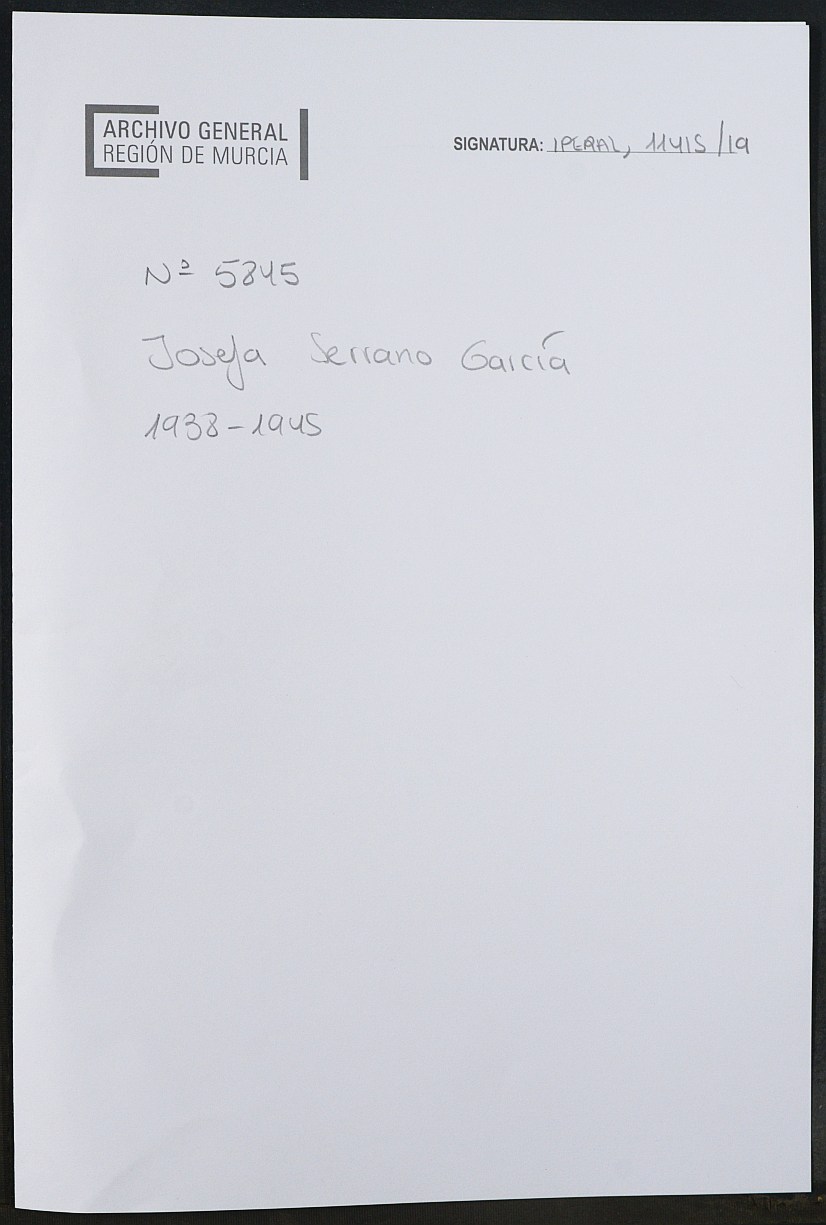 ARCHIVO GENERAL
REGIÓN DE MURCIA
SIGNATURA: IPERAL, 11415/19
Nº 5845
Josefa Serrano García
1938-1945